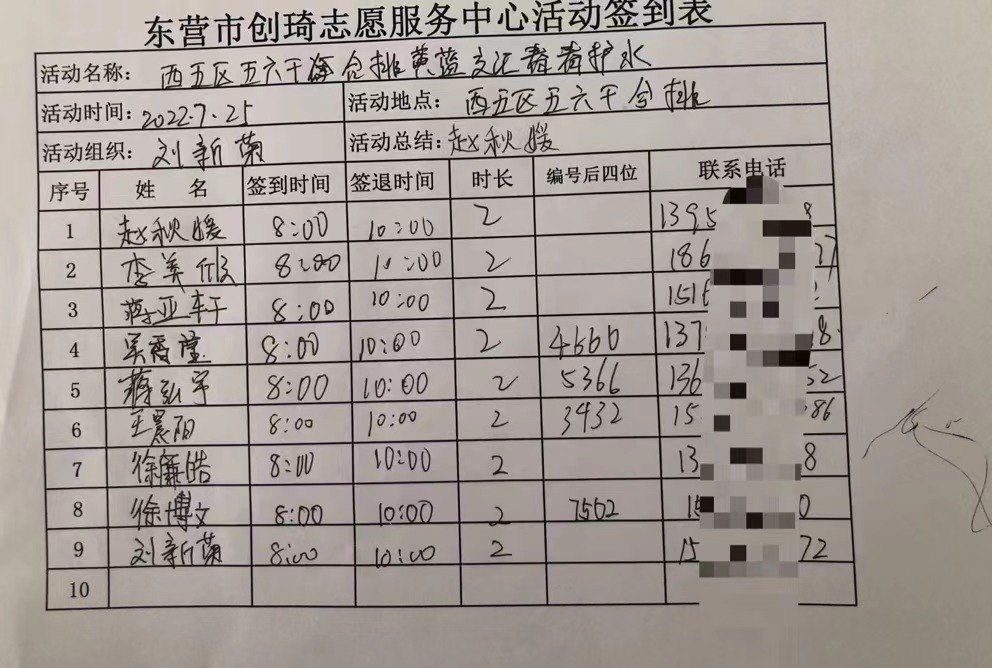 东营市创琦志愿服务中心活动签到表
活动名称: 西五区五六干合排黄蓝交汇青春护水
活动时间: 2022.7.25 活动地点: 西五区五六干合排
活动组织: 刘新菊 活动总结: 赵秋媛
序号 姓 名 签到时间 签退时间 时长 编号后四位 联系电话
1 赵秋媛 8:00 10:00 2 1395 8
2 李美欣 8:00 10:00 2 186 77
3 蒋亚轩 8:00 10:00 2 151
4 吴雨瞳 8:00 10:00 2 4660 137 8
5 蒋弘宇 8:00 10:00 2 5366 136 52
6 王晨阳 8:00 10:00 2 3432 15 86
7 徐 皓 8:00 10:00 2 13 8
8 徐博文 8:00 10:00 2 7502 15 0
9 刘新菊 8:00 10:00 2 15 72
10